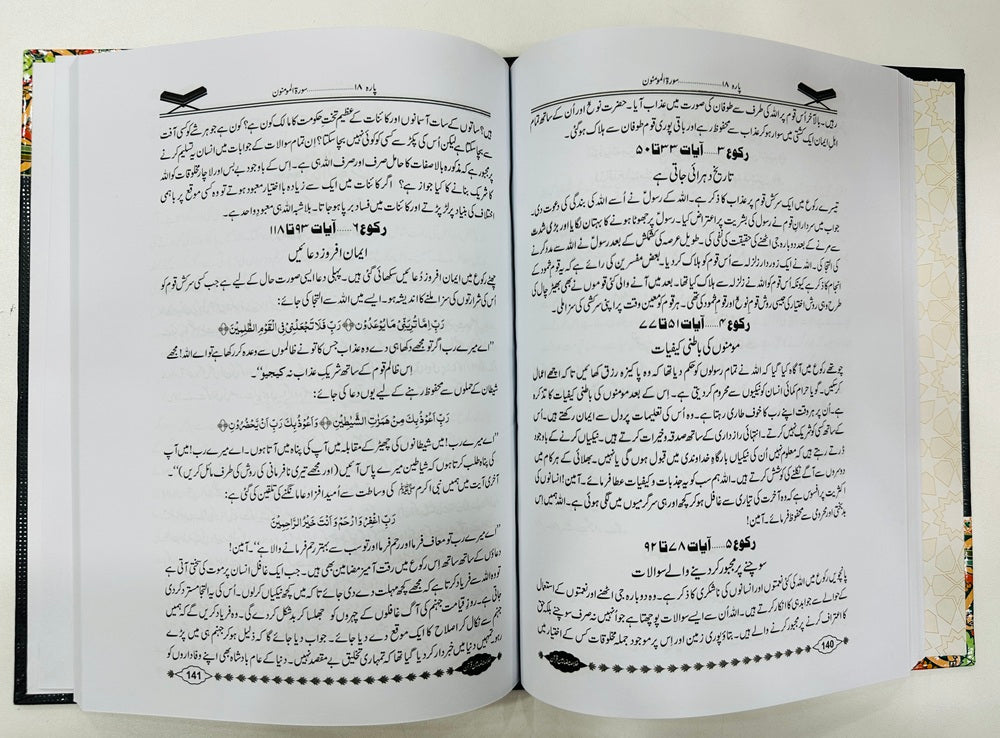 پارہ ۱۸ ........................ سورۃ المؤمنون
رہیں۔ بالآخر اُس قوم پر اللہ کی طرف سے طوفان کی صورت میں عذاب آیا۔ حضرت نوحؑ اور اُن کے ساتھ تمام
اہل ایمان ایک کشتی میں سوار ہو کر عذاب سے محفوظ رہے اور باقی پوری قوم طوفان سے ہلاک ہو گئی۔
رکوع ۳ ..... آیات ۳۳ تا ۵۰
تاریخ دہرائی جاتی ہے
تیسرے رکوع میں ایک سرکش قوم پر عذاب کا ذکر ہے۔ اللہ کے رسولؑ نے اُسے اللہ کی بندگی کی دعوت دی۔
جواب میں سردارانِ قوم نے رسول کی بشریت پر اعتراض کیا۔ رسولؑ پر جھوٹا ہونے کا بہتان لگایا اور بڑی شدت
سے مرنے کے بعد دوبارہ جی اٹھنے کی حقیقت کی نفی کی۔ طویل عرصہ کی کشمکش کے بعد رسولؑ نے اللہ سے مدد کرنے
کی التجا کی۔ اللہ نے ایک زوردار زلزلہ سے اُس قوم کو ہلاک کر دیا۔ بعض مفسرین کی رائے ہے کہ یہ قومِ ثمود کے
انجام کا ذکر ہے کیونکہ اُس قوم کو اللہ نے زلزلہ سے ہلاک کیا تھا۔ بعد میں آنے والی کئی قوموں نے بھی بھیڑ چال کی
طرح وہی روش اختیار کی جیسی روش قومِ نوح اور قومِ ثمود کی تھی۔ ہر قوم کو معین وقت پر اپنی سرکشی کی سزا ملی۔
رکوع ۴ ..... آیات ۵۱ تا ۷۷
مومنوں کی باطنی کیفیات
چوتھے رکوع میں آگاہ کیا گیا کہ اللہ نے تمام رسولوں کو حکم دیا تھا کہ وہ پاکیزہ رزق کھائیں تاکہ اچھے اعمال
کر سکیں۔ گویا حرام کمائی انسان کو نیکیوں سے محروم کر دیتی ہے۔ اس کے بعد مومنوں کی باطنی کیفیات کا تذکرہ
ہے۔ اُن پر ہر وقت اپنے رب کا خوف طاری رہتا ہے۔ وہ اُس کی تعلیمات پر دل سے ایمان رکھتے ہیں۔ اُس
کے ساتھ کسی کو شریک نہیں کرتے۔ انتہائی رازداری کے ساتھ صدقہ و خیرات کرتے ہیں۔ نیکیاں کرنے کے باوجود
ڈرتے رہتے ہیں کہ معلوم نہیں اُن کی نیکیاں بارگاہِ خداوندی میں قبول ہوں گی یا نہیں۔ بھلائی کے ہر کام میں
دوسروں سے آگے نکلنے کی کوشش کرتے ہیں۔ اللہ ہم سب کو یہ جذبات و کیفیات عطا فرمائے۔ آمین! انسانوں کی
اکثریت پر افسوس ہے کہ وہ آخرت کی تیاری سے غافل ہو کر کچھ اور ہی سرگرمیوں میں لگی ہوئی ہے۔ اللہ ہمیں اس
بدبختی اور محرومی سے محفوظ فرمائے۔ آمین!
رکوع ۵ ..... آیات ۷۸ تا ۹۲
سوچنے پر مجبور کر دینے والے سوالات
پانچویں رکوع میں اللہ کی کئی نعمتوں اور انسانوں کی ناشکری کا ذکر ہے۔ وہ دوبارہ جی اٹھنے اور نعمتوں کے استعمال
کے حوالے سے جوابدہی کا انکار کرتے ہیں۔ اللہ اُن سے ایسے سوالات پوچھتا ہے جو اُنہیں نہ صرف سوچنے بلکہ حق
کا اعتراف کرنے پر مجبور کرنے والے ہیں۔ بتاؤ پوری زمین اور اِس پر موجود جملہ مخلوقات کس کے اختیار میں
140
پارہ ۱۸ ........................ سورۃ المؤمنون
ہیں؟ ساتوں کے سات آسمانوں اور کائنات کے عظیم تختِ حکومت کا مالک کون ہے؟ کون ہے جو ہر شے کو کسی آفت
سے بچا سکتا ہے لیکن اُس کی پکڑ سے کسی کو کوئی نہیں بچا سکتا؟ اِن تمام سوالات کے جوابات میں انسان یہ تسلیم کرنے
پر مجبور ہے کہ مذکورہ بالا صفات کا حامل صرف اور صرف اللہ ہی ہے۔ اِس کے باوجود بے بس اور لاچار مخلوقات کو اللہ
کا شریک بنانے کا کیا جواز ہے؟ اگر کائنات میں ایک سے زیادہ بااختیار معبود ہوتے تو وہ کسی موقع پر باہمی
اختلاف کی بنیاد پر لڑ پڑتے اور کائنات میں فساد برپا ہو جاتا۔ بلاشبہ اللہ ہی معبودِ واحد ہے۔
رکوع ۶ ..... آیات ۹۳ تا ۱۱۸
ایمان افروز دعائیں
چھٹے رکوع میں ایمان افروز دُعائیں سکھائی گئی ہیں۔ پہلی دعا ایسی صورت حال کے لیے ہے جب کسی سرکش قوم کو
اُس کی شرارتوں کی سزا ملنے کا اندیشہ ہو۔ ایسے میں اللہ سے التجا کی جائے:
رَبِّ اِمَّا تُرِیَنِّیْ مَا یُوْعَدُوْنَ ﴿﴾ رَبِّ فَلَا تَجْعَلْنِیْ فِی الْقَوْمِ الظّٰلِمِیْنَ ﴿﴾
"اے میرے رب اگر تو مجھے دکھا ہی دے وہ عذاب جس کا تو نے ظالموں سے وعدہ کر رکھا ہے تو اے اللہ! مجھے
اِس ظالم قوم کے ساتھ شریکِ عذاب نہ کیجیو"۔
شیطان کے حملوں سے محفوظ رہنے کے لیے یوں دعا کی جائے:
رَبِّ اَعُوْذُ بِکَ مِنْ هَمَزٰتِ الشَّیٰطِیْنِ ﴿﴾ وَاَعُوْذُ بِکَ رَبِّ اَنْ یَّحْضُرُوْنِ ﴿﴾
"اے میرے رب! میں شیطانوں کی چھیڑ کے مقابلہ میں آپ کی پناہ میں آتا ہوں۔ اے میرے رب! میں آپ
کی پناہ طلب کرتا ہوں کہ شیاطین میرے پاس آئیں (اور مجھے تیری نافرمانی کی روش کی طرف مائل کریں)"۔
آخری آیت میں ہمیں نبی اکرم ﷺ کی وساطت سے اُمید افزا دعا مانگنے کی تلقین کی گئی ہے:
رَبِّ اغْفِرْ وَارْحَمْ وَاَنْتَ خَیْرُ الرَّاحِمِیْنَ
"اے میرے رب تو معاف فرما اور رحم فرما اور تو سب سے بہتر رحم فرمانے والا ہے"۔ آمین!
دعاؤں کے ساتھ ساتھ اس رکوع میں رقت آمیز مضامین بھی ہیں۔ جب ایک غافل انسان پر موت کی سختی آتی ہے
تو وہ اللہ سے فریاد کرتا ہے کہ مجھے کچھ مہلت دے دی جائے تاکہ میں کچھ نیکیاں کر لوں۔ اُس کی یہ التجا مسترد کر دی
جاتی ہے۔ روزِ قیامت جہنم کی آگ غافلوں کے چہروں کو جھلسا کر بدشکل کر دے گی۔ وہ فریاد کریں گے کہ ہمیں
جہنم سے نکال کر اصلاح کا ایک موقع دے دیا جائے۔ جواب دیا جائے گا کہ ذلیل ہو کر جہنم ہی میں پڑے
رہو۔ تمہیں دنیا میں خبردار کر دیا گیا تھا کہ تمہاری تخلیق بے مقصد نہیں۔ دنیا کے عام بادشاہ بھی اپنے وفاداروں کو
141